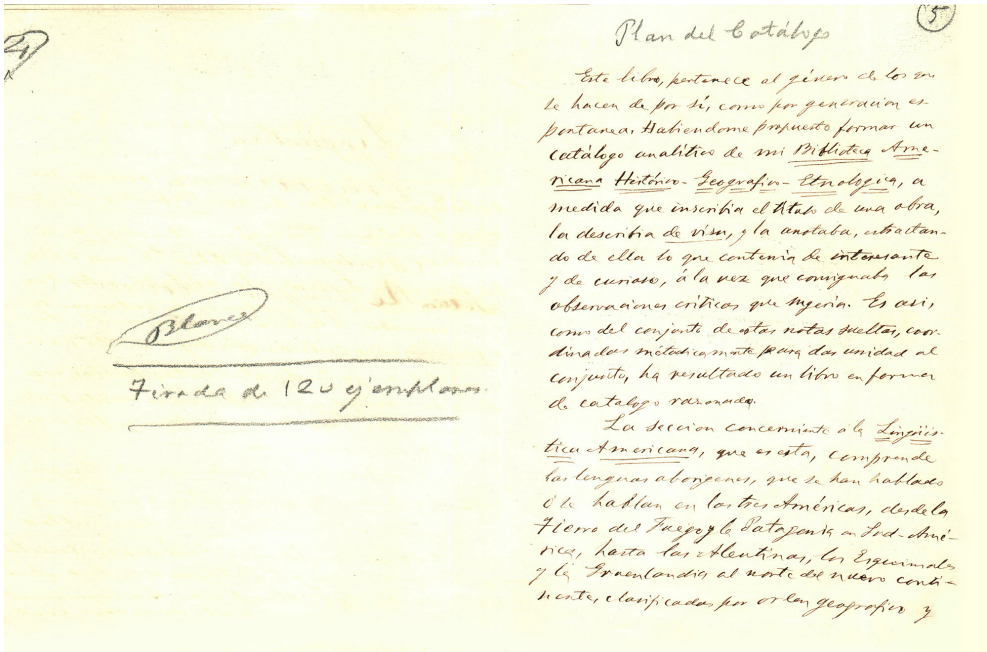 Blanco
Tirada de 120 ejemplares.
5
Plan del Catálogo
Este libro, pertenece al género de los que
se hacen de por sí, como por generacion es-
pontanea. Habiendome propuesto formar un
catálogo analítico de mi Biblioteca Ame-
ricana Histórico-Geografico-Etnologica, a
medida que inscribia el título de una obra,
la describia de visu, y la anotaba, estractan-
do de ella lo que contenia de interesante
y de curioso, á la vez que consignaba las
observaciones criticas que sugeria. Es asi,
como del conjunto de estas notas sueltas, coor-
dinadas metodicamente para dar unidad al
conjunto, ha resultado un libro en forma
de catalogo razonado.
La seccion concerniente á la Lingüis-
tica Americana, que es esta, comprende
las lenguas aborígenes, que se han hablado
ó se hablan en las tres Américas, desde la
Tierra del Fuego y la Patagonia en Sud-Amé-
rica, hasta las Aleutinas, los Esquimales
y la Groenlandia al norte del nuevo conti-
nente, clasificadas por orden geografico y